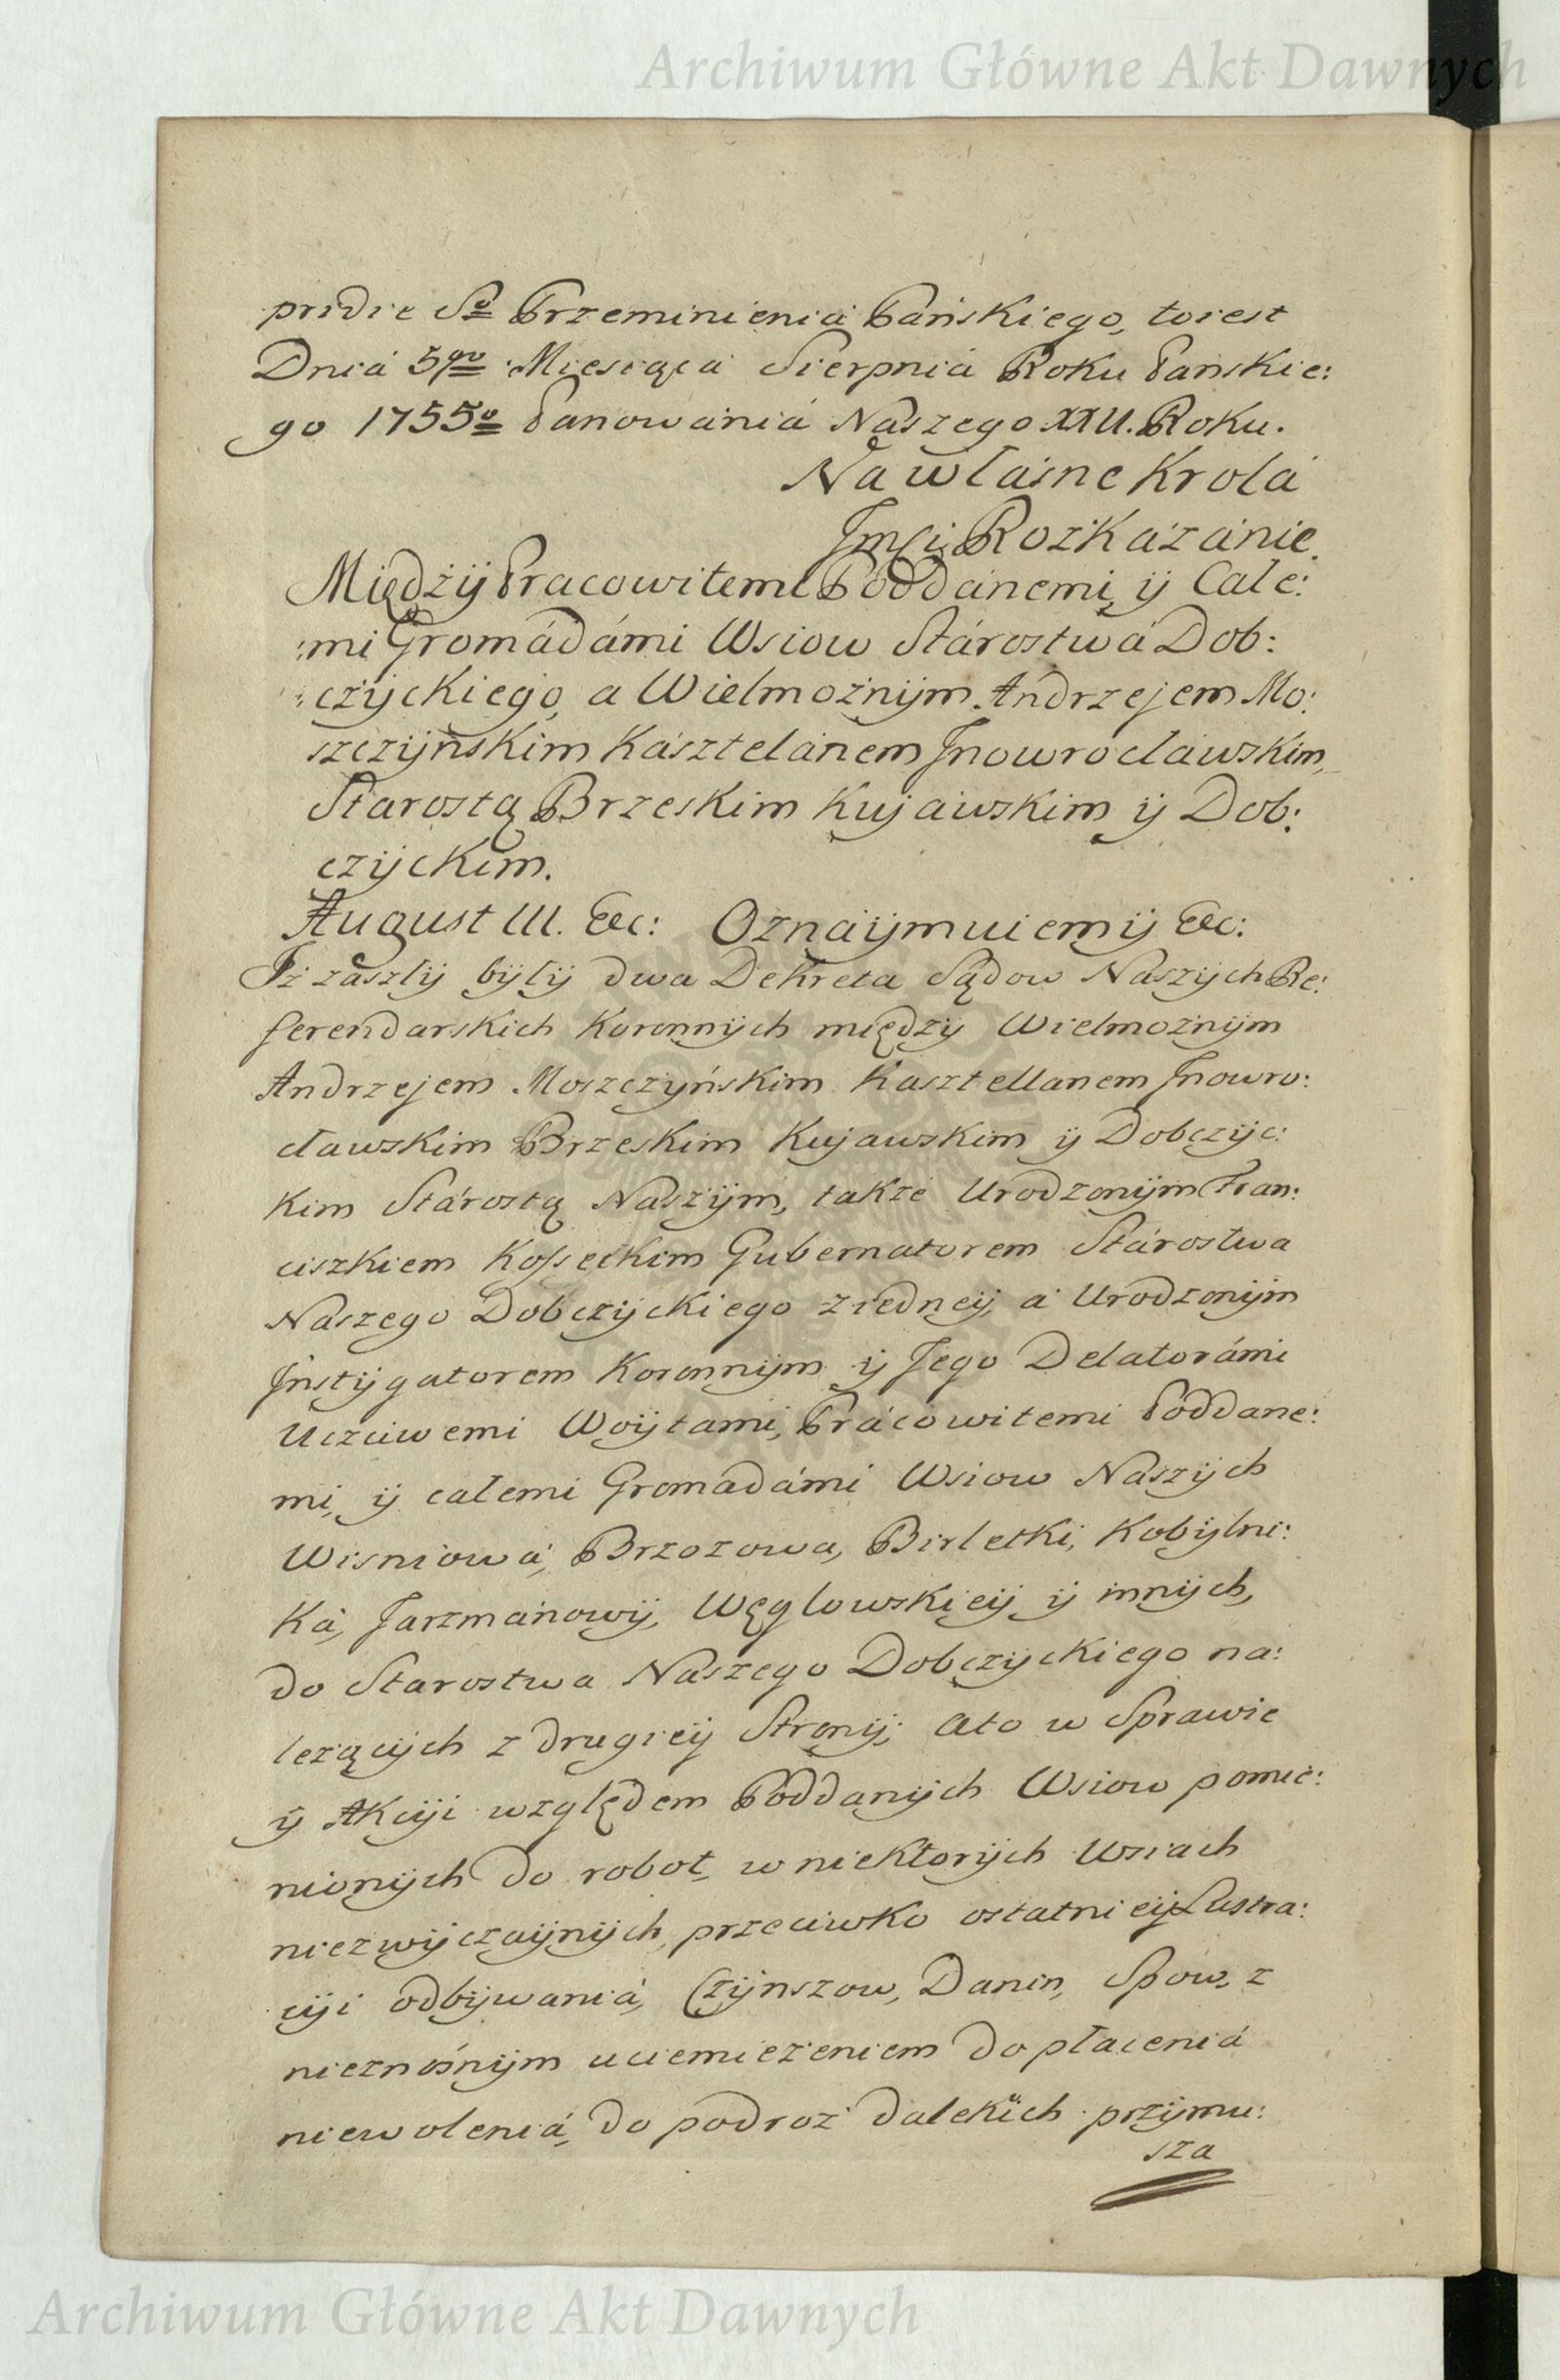 Archiwum Główne Akt Dawnych
pridie So Przeminieniá Pańskiego, toiest
Dniá 5go Miesiącá Sierpniá Roku Panskie:
go 1755o Panowániá Naszego XXII. Roku.
Ná własne Krolá
Jmści Rozkázánie.
Międzÿ Pracowitemi Poddánemi ÿ Całe:
:mi Gromádámi Wsiow Stárostwá Dob:
:czÿckiego, a Wielmożnÿm Andrzejem Mo:
szczÿńskim Kásztelánem Jnowrocławskim,
Starostą Brzeskim Kujáwskim ÿ Dob:
czÿckim.
August III. &c: Oznáÿmuiemÿ &c:
Jż zászłÿ bÿłÿ dwa Dekreta Sądow Naszÿch Re:
ferendarskich Koronnÿch międzÿ Wielmożnÿm
Andrzejem Moszczÿńskim Kasztellanem Jnowro:
cławskim Brzeskim Kujawskim ÿ Dobczÿc:
kim Stárostą Naszÿm, także Urodzonÿm Fran:
ciszkiem Kosseckim Gubernatorem Stárostwa
Naszego Dobczÿckiego ziednęÿ, á Urodzonÿm
Jnstÿgatorem Koronnÿm ÿ Jego Delatorámi
Uczciwemi Woÿtami, Prácowitemi Poddane:
mi, ÿ całemi Gromadámi Wsiow Naszÿch
Wisniowá, Brzozowa, Birletki, Kobÿlni:
ká, Jarzmánowÿ, Węglowskieÿ ÿ innÿch,
do Starostwa Naszego Dobczÿckiego na:
leżącÿch z drugieÿ Stronÿ; Ato w Sprawie
ÿ Akcÿi względem Poddanÿch Wsiow pomie:
nionÿch do robot w niektorÿch Wsiach
niezwÿczaÿnÿch, przeciwko ostatnieÿ Lustra:
cÿi odbÿwaniá, Czÿnszow, Danin, Spow, z
nieznośnÿm uciemiężeniem do płaceniá
niewoleniá, do podroż dalekich przÿmu:
sza
Archiwum Główne Akt Dawnych